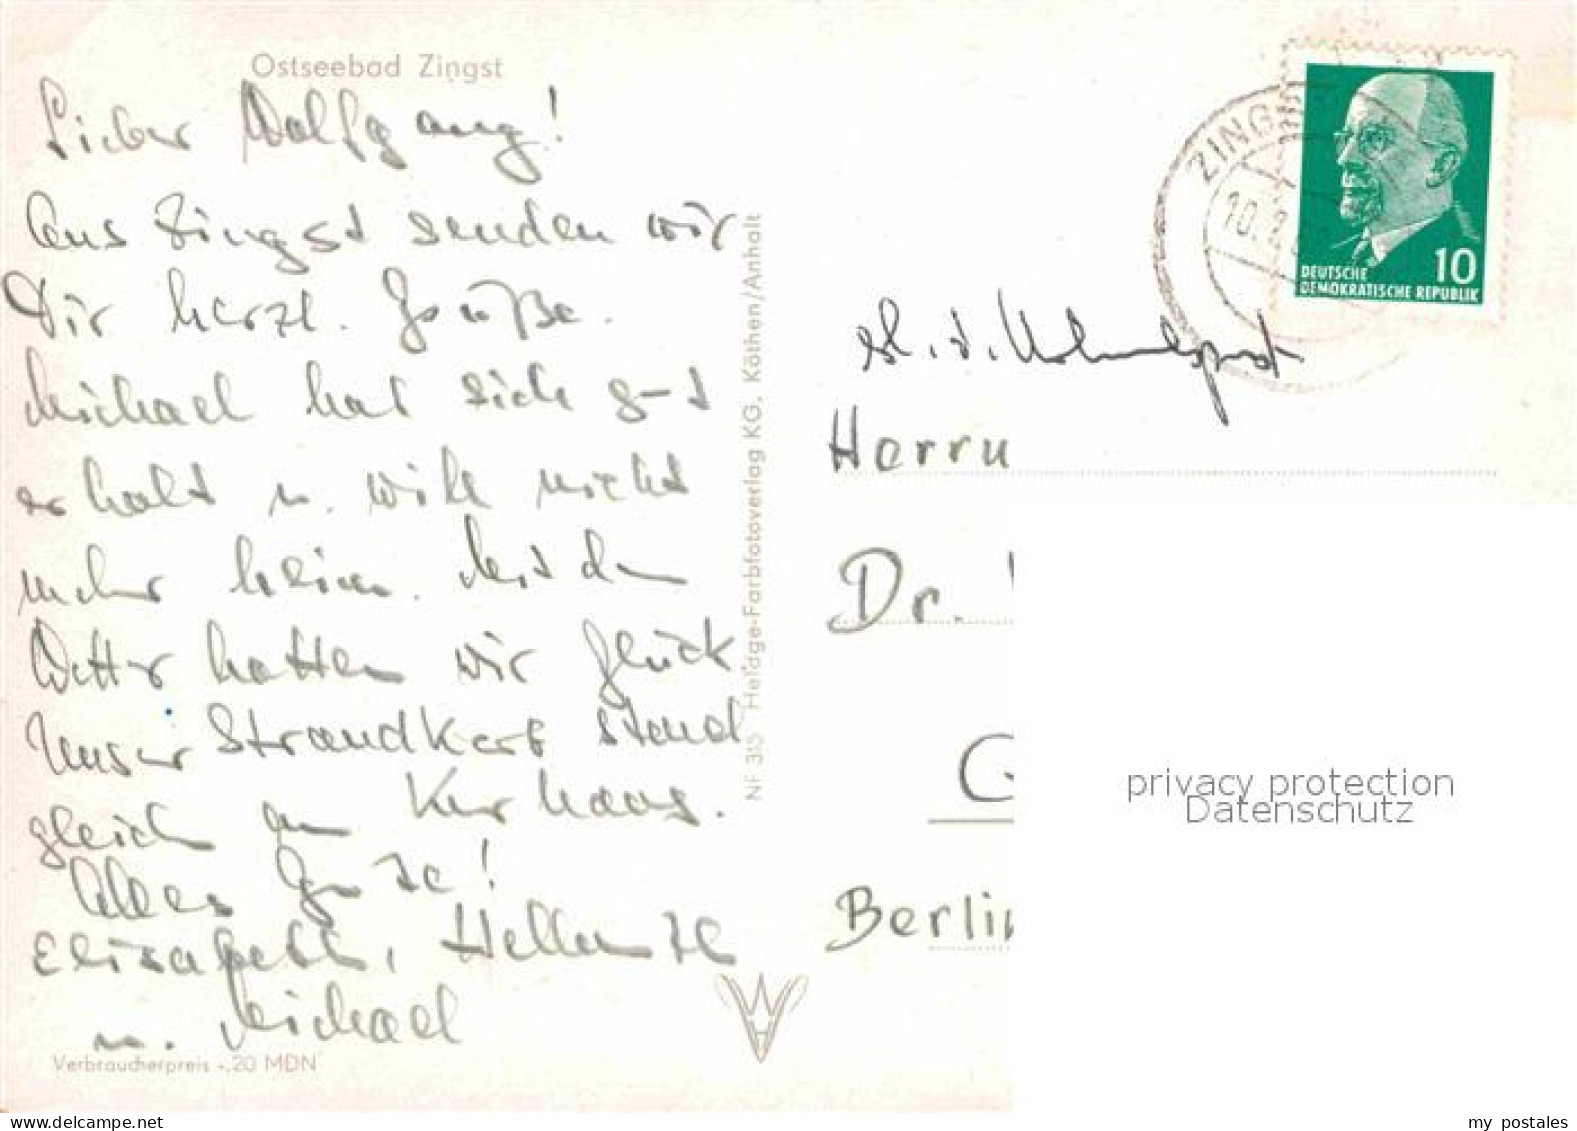 Ostseebad Zingst
Lieber Wolfgang!
Aus Zingst senden wir
Dir herzl. Grüße.
Michael hat sich gut
erholt u. will nicht
mehr heim. Mit dem
Wetter hatten wir Glück.
Unser Strandkorb stand
gleich am Kurhaus.
Alles Gute!
Elisabeth,
u. Michael
Verbraucherpreis -,20 MDN
NF 315 Heldge-Farbfotoverlag KG, Köthen/Anhalt
ZINGST
10.
10
DEUTSCHE
DEMOKRATISCHE REPUBLIK
Herrn
Dr.
Berlin
privacy protection
Datenschutz
www.delcampe.net
my postales